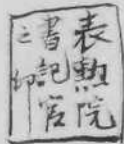 表勲院
書記官
之印